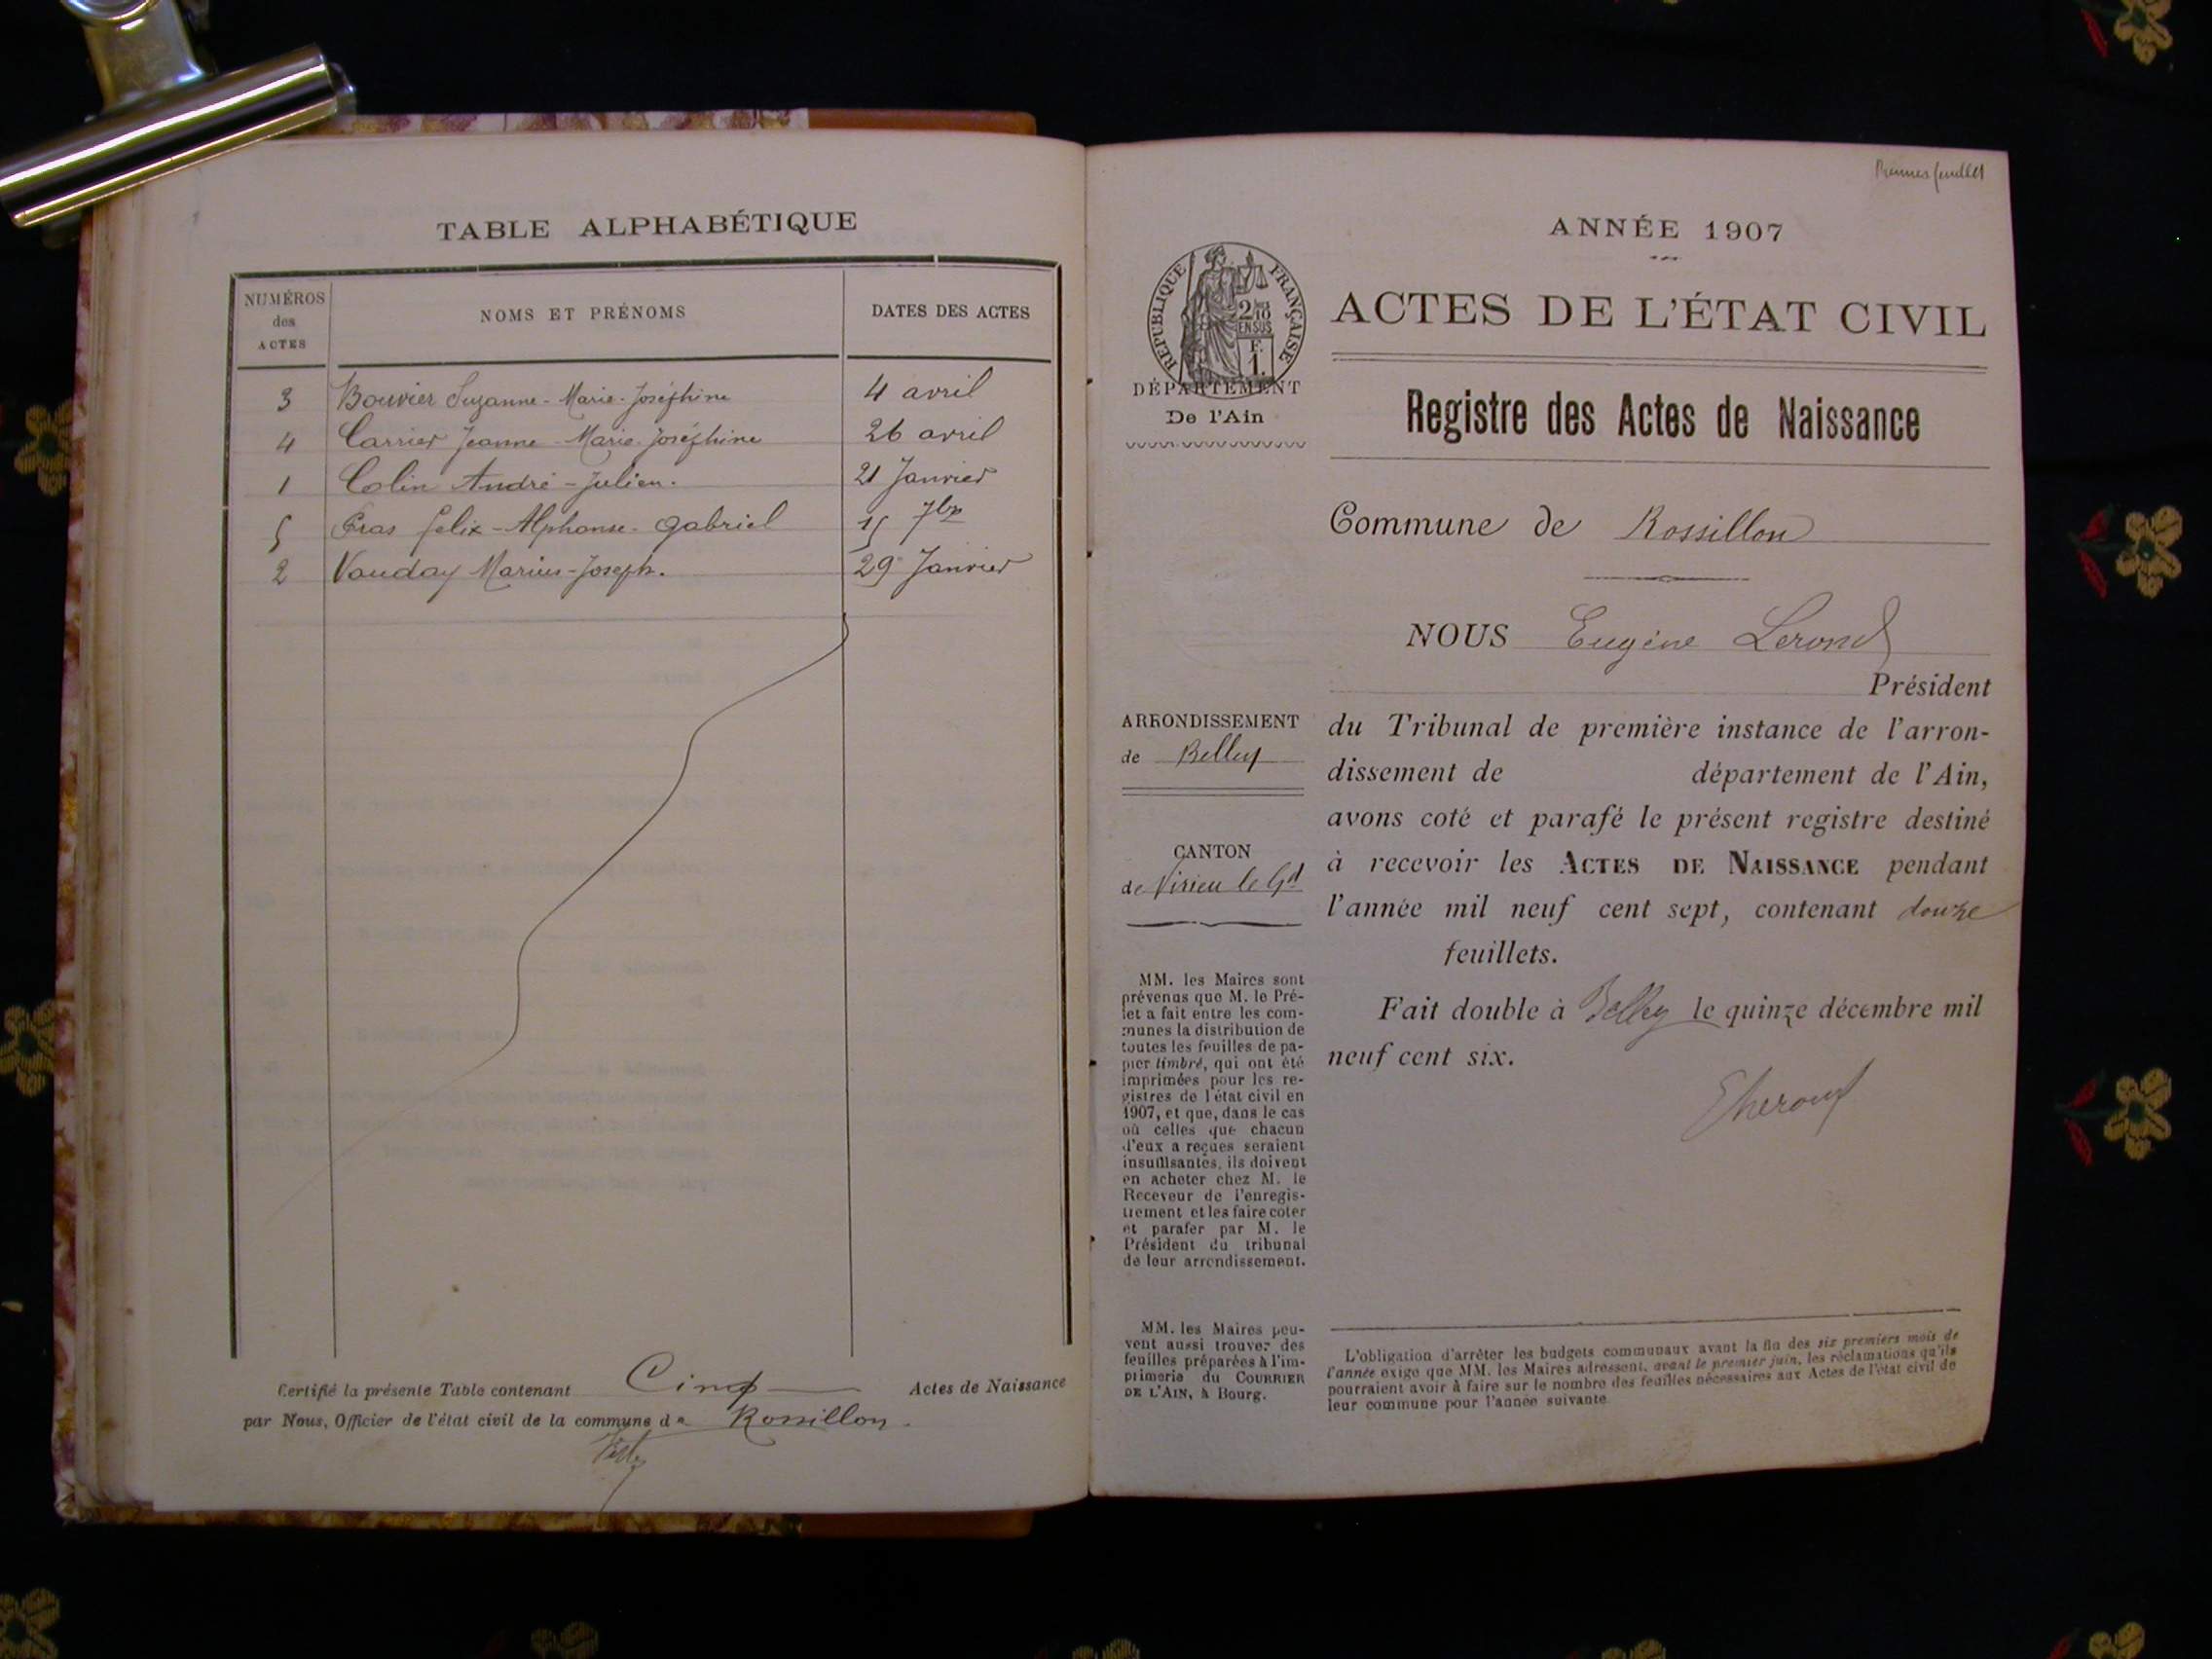 TABLE ALPHABÉTIQUE
NUMÉROS des ACTES
NOMS ET PRÉNOMS
DATES DES ACTES
3 Bouvier Suzanne-Marie-Joséphine 4 avril
4 Carrier Jeanne-Marie-Joséphine 26 avril
1 Colin André-Julien. 21 Janvier
5 Felix-Alphonse-Gabriel 15 7bre
2 Vauday Marius-Joseph. 29 Janvier
Certifié la présente Table contenant Cinq Actes de Naissance
par Nous, Officier de l'état civil de la commune de Rossillon.
ANNÉE 1907
RÉPUBLIQUE FRANÇAISE
2/10 EN SUS
F. 1.
ACTES DE L'ÉTAT CIVIL
DÉPARTEMENT
De l'Ain
Registre des Actes de Naissance
Commune de Rossillon
NOUS Eugène
Président
ARRONDISSEMENT
de Belley
du Tribunal de première instance de l'arron-
dissement de département de l'Ain,
avons coté et parafé le présent registre destiné
à recevoir les ACTES DE NAISSANCE pendant
l'année mil neuf cent sept, contenant douze
feuillets.
Fait double à Belley le quinze décembre mil
neuf cent six.
CANTON
de Virieu le Gd
MM. les Maires sont
prévenus que M. le Pré-
fet a fait entre les com-
munes la distribution de
toutes les feuilles de pa-
pier timbré, qui ont été
imprimées pour les re-
gistres de l'état civil en
1907, et que, dans le cas
où celles que chacun
d'eux a reçues seraient
insuffisantes, ils doivent
en acheter chez M. le
Receveur de l'enregis-
trement et les faire coter
et parafer par M. le
Président du tribunal
de leur arrondissement.
MM. les Maires peu-
vent aussi trouver des
feuilles préparées à l'im-
primerie du COURRIER
DE L'AIN, à Bourg.
L'obligation d'arrêter les budgets communaux avant la fin des six premiers mois de
l'année exige que MM. les Maires adressent, avant le premier juin, les réclamations qu'ils
pourraient avoir à faire sur le nombre des feuilles nécessaires aux Actes de l'état civil de
leur commune pour l'année suivante